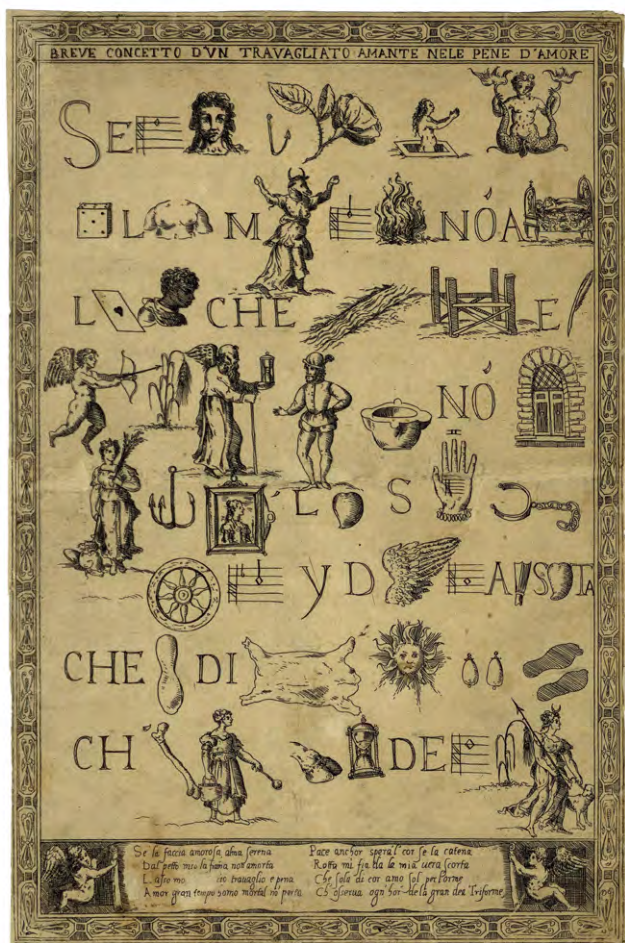 BREVE CONCETTO D'VN TRAVAGLIATO AMANTE NELE PENE D'AMORE
SE
L M NÓA
L CHE E
NÓ
L S
Y D A S TA
CHE DI
CH DE
Se la faccia amorosa alma serena
Dal petto mio la fiama nō amorta
Lasso mo in travaglio e pena
Amor gran tempo uomo mortal nō porta
Pace anchor spera'l cor se la catena
Rotta mi sia da la mia uera scorta
Che sola di cor amo sol per l'orme
Ch'osserva ogn'hor de la gran dea Triforme